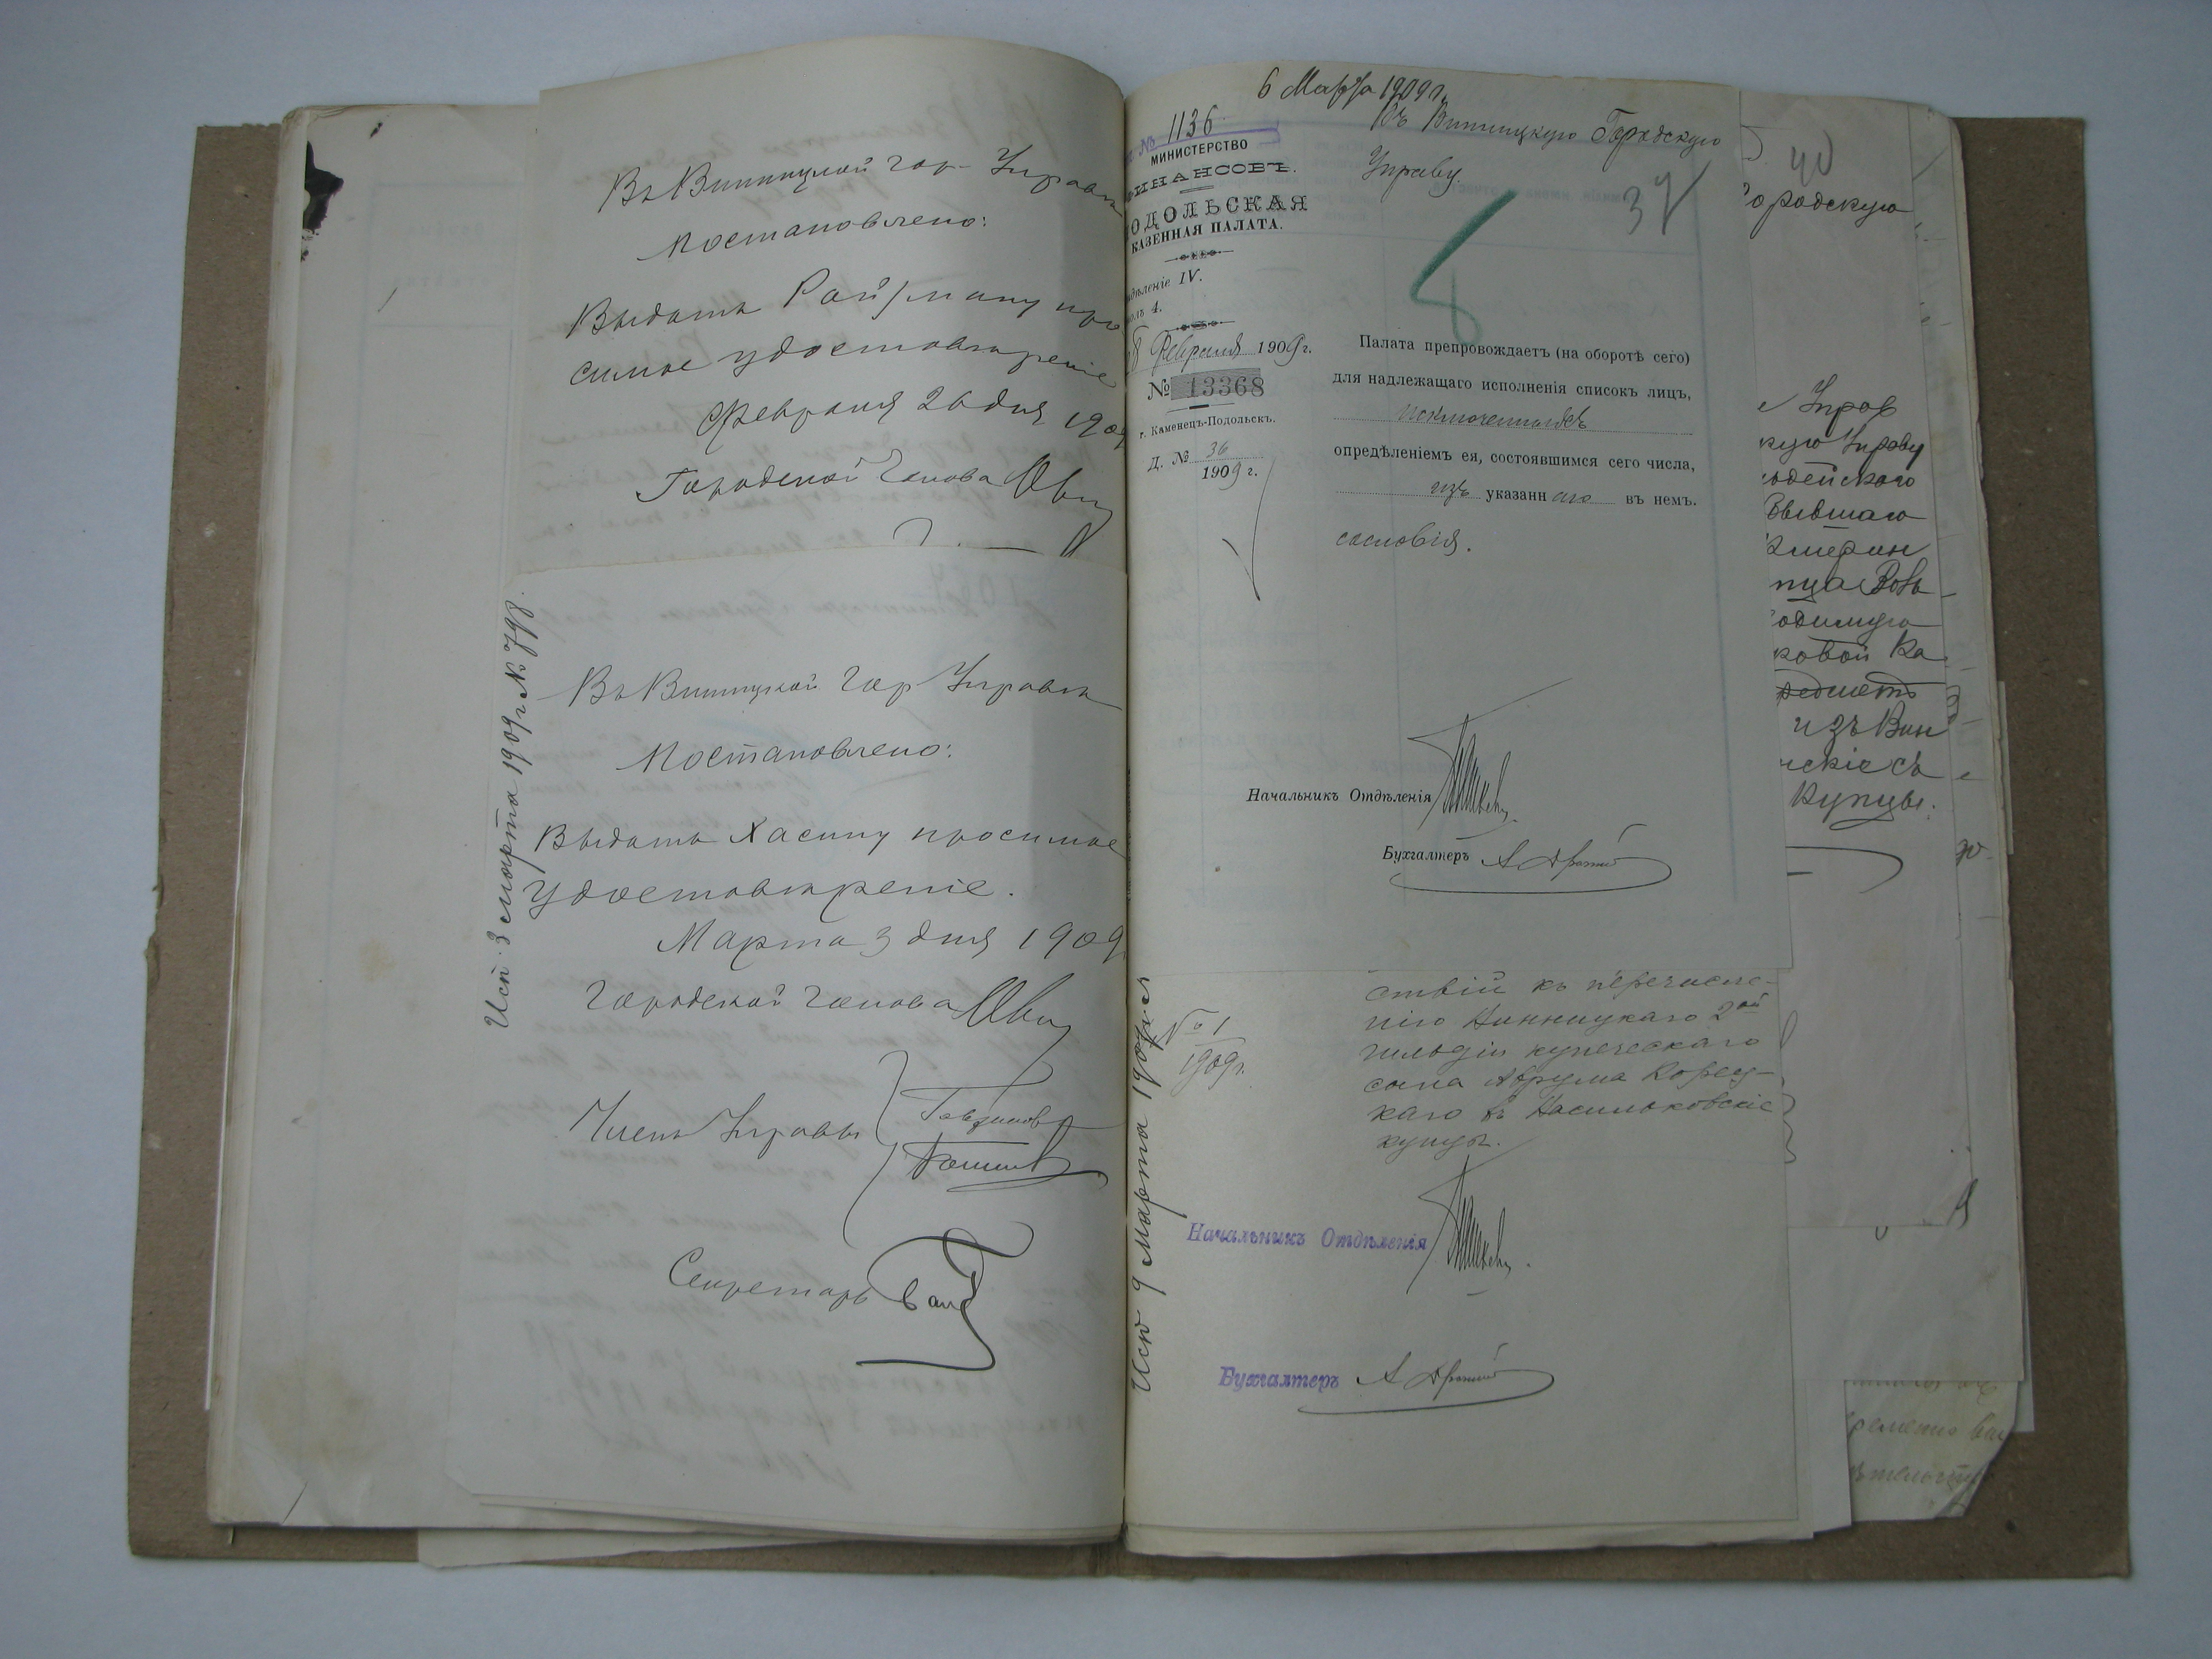 Въ Винницкой гор. Управѣ
Постановлено:
ВыдатьРойтману про
симое удостовѣреніе
Февраля 26 дня 1909
Городской Голова
Исп. 3 марта 1909 г. № 798.
Въ Винницкой Гор Управѣ
Постановлено:
Выдать Хасину просимое
удостовѣреніе.
Марта 3 дня 1909
Городской Голова
Члены Управы
Секретарь
6 Марта 1909 г.
№ 1136
МИНИСТЕРСТВО
ФИНАНСОВЪ.
ПОДОЛЬСКАЯ
КАЗЕННАЯ ПАЛАТА.
Отдѣленіе IV.
Столъ 4.
Февраля 1909 г.
№ 13368
г. Каменецъ-Подольскъ.
Д. № 36
1909 г.
Въ Винницкую Городскую
Управу.
37
Палата препровождаетъ (на оборотѣ сего)
для надлежащаго исполненія списокъ лицъ,
исключенныхъ
опредѣленіемъ ея, состоявшимся сего числа,
изъ указаннаго въ немъ.
сословія.
Начальникъ Отдѣленія
Бухгалтеръ
Исп 9 марта 1909 г.
№ 1
1909 г.
ствій къ перечисле-
нію Винницкаго 2ой
гильдіи купеческаго
сына Аврума Корец-
каго въ Васильковскіе
купцы.
Начальникъ Отдѣленія
Бухгалтеръ
40
Городскую
Управ
кую Управу
бывшаго
изъ Вин
купцы.